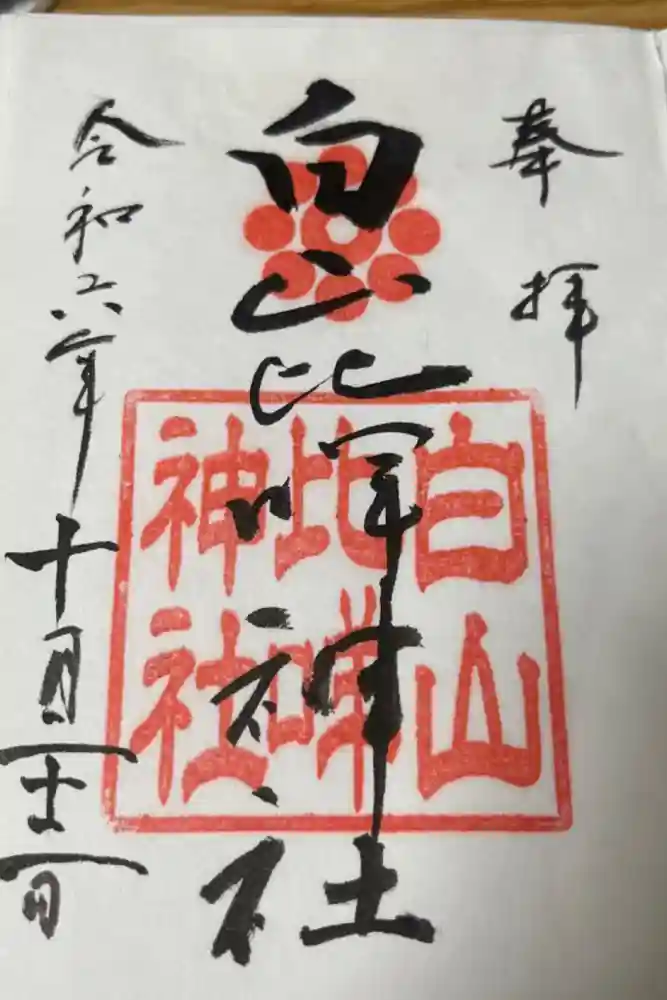 奉拝
白山比咩神社
白山
比咩
神社
令和六年十月二十二日